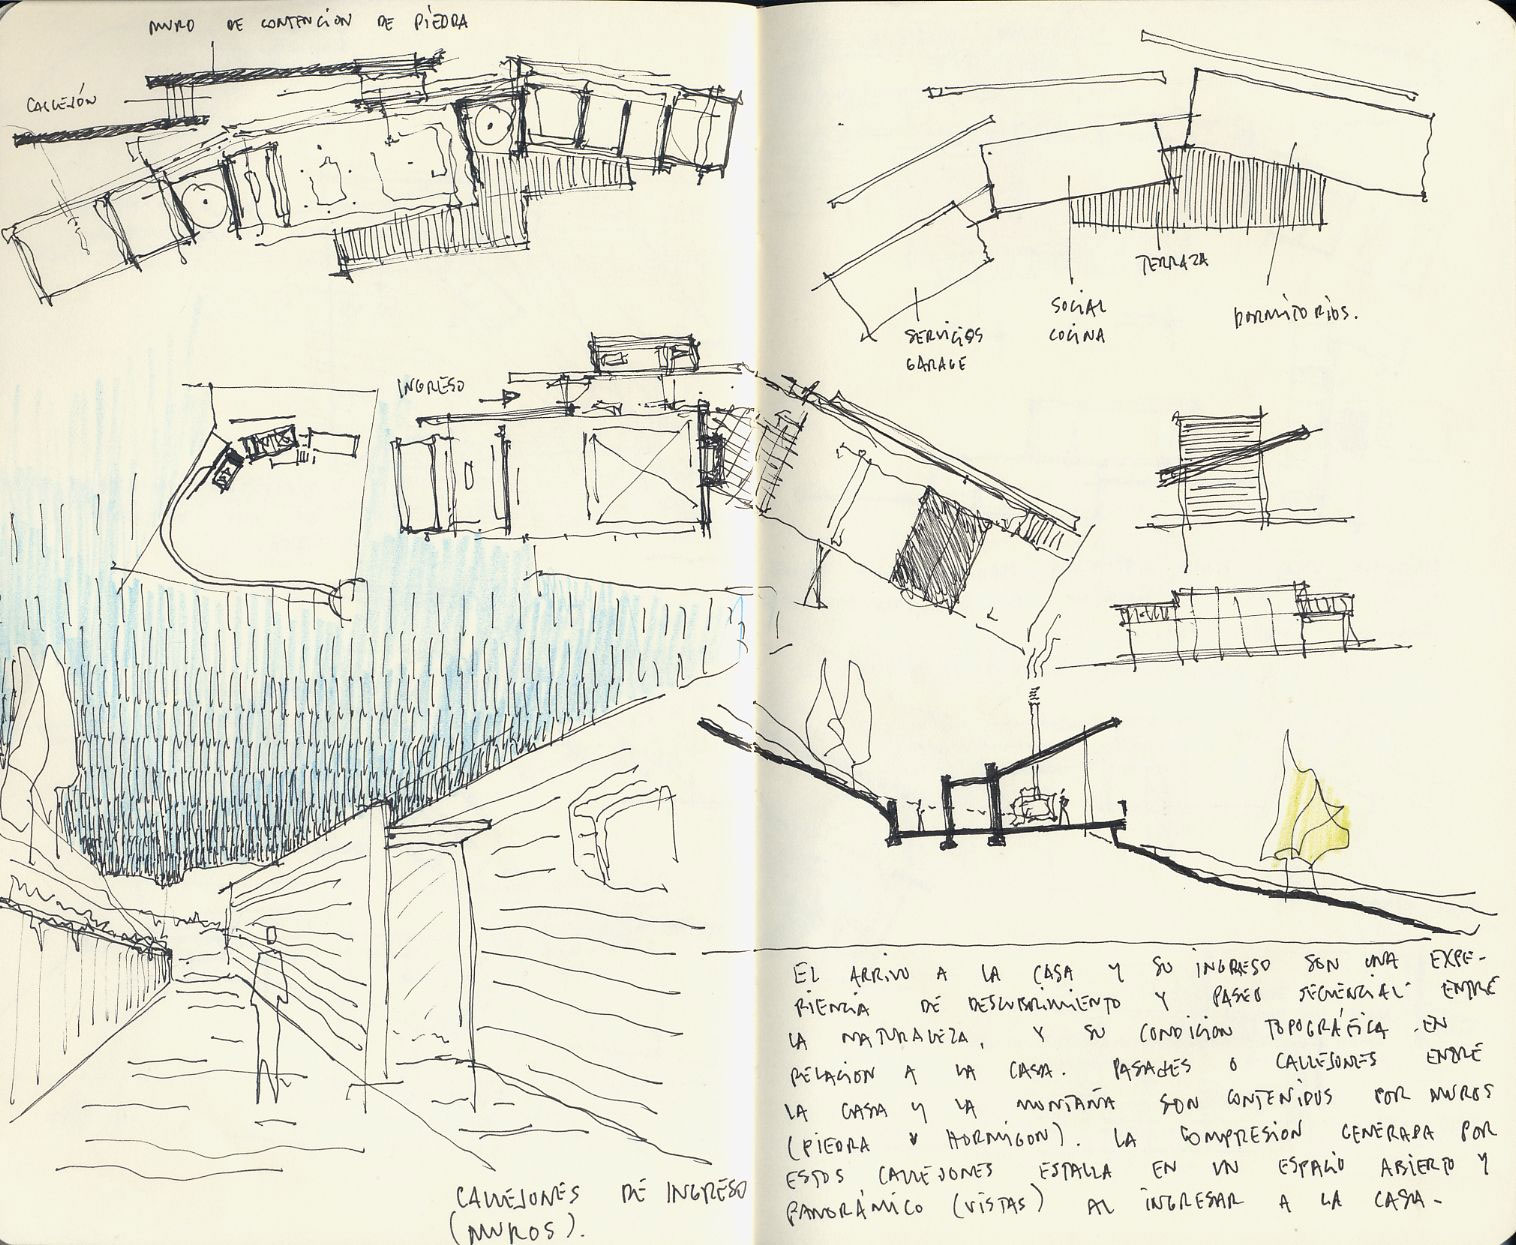 MURO DE CONTENCION DE PIEDRA
CALLEJÓN
TERRAZA
SOCIAL
COCINA
DORMITORIOS.
SERVICIOS
GARAGE
INGRESO
EL ARRIVO A LA CASA Y SU INGRESO SON UNA EXPE-
RIENCIA DE DESCUBRIMIENTO Y PASEO SECUENCIAL ENTRE
LA NATURALEZA, Y SU CONDICION TOPOGRÁFICA EN
RELACION A LA CASA. PASAJES O CALLEJONES ENTRE
LA CASA Y LA MONTAÑA SON CONTENIDOS POR MUROS
(PIEDRA Y HORMIGON). LA COMPRESION GENERADA POR
ESTOS CALLEJONES ESTALLA EN UN ESPACIO ABIERTO Y
PANORÁMICO (VISTAS) AL INGRESAR A LA CASA.
CALLEJONES DE INGRESO
(MUROS).